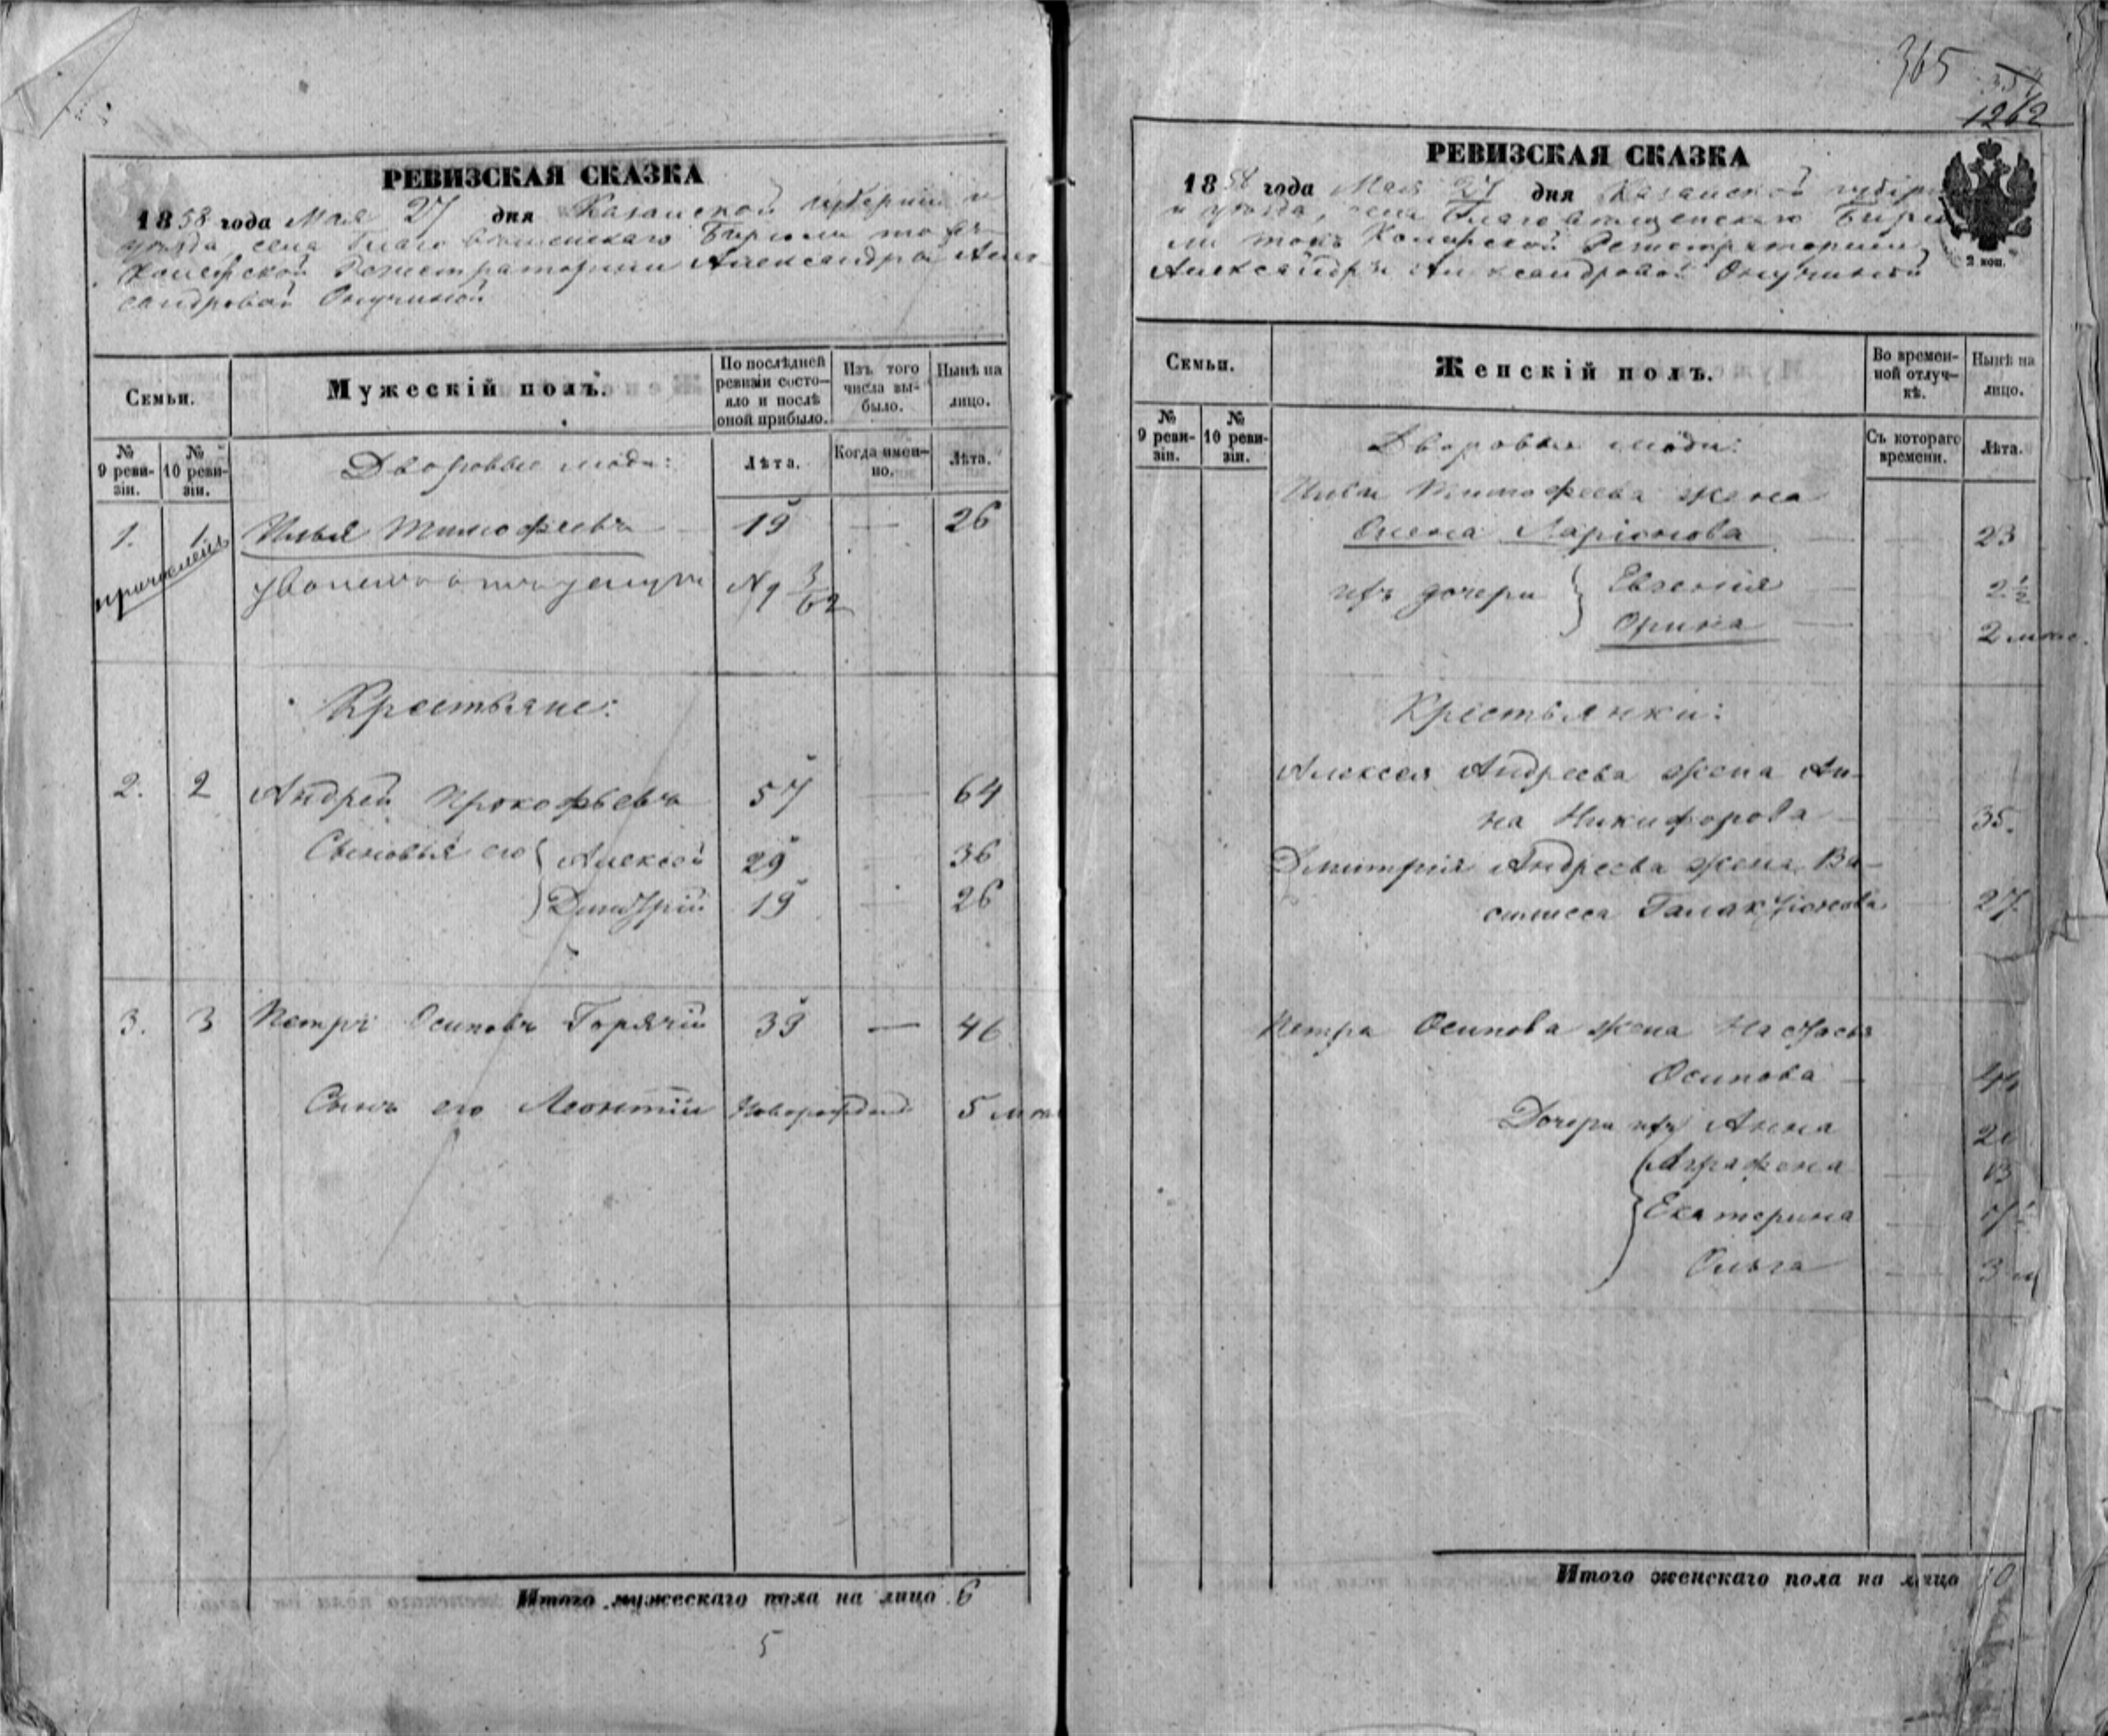 РЕВИЗСКАЯ СКАЗКА
1858 года Мая 27 дня Казанской губерніи и
уѣзда, села Благовѣщенскаго Бирюли тожъ
Коллежской Регистраторши Александры Алек-
сандровой Онучиной
Семьи.
Мужескій полъ.
По послѣдней ревизіи состо-яло и послѣ оной прибыло.
Изъ того числа вы-было.
Нынѣ на лицо.
№ 9 реви-зіи.
№ 10 реви-зіи.
Дворовые люди:
Лѣта.
Когда имен-но.
Лѣта.
1. 1. Илья Тимофеевъ 19 — 26
№ 9 3/62
Крестьяне:
2. 2 Андрей Прокофьевъ 57 — 64
Сыновья его { Алексей 29 36
Димитрій 19 26
3. 3 Петръ Осиповъ Горячій 39 — 46
Сынъ его Леонтій Новорожден 5 м
Итого мужескаго пола на лицо 6
5
365
1262
РЕВИЗСКАЯ СКАЗКА
1858 года Мая 27 дня Казанской губерн
и уѣзда, села Благовѣщенскаго Бирю
ли тожъ Колежской Регистраторши
Александры Александровой Онучиной
2 коп.
Семьи.
Женскій полъ.
Во времен-ной отлуч-кѣ.
Нынѣ на лицо.
№ 9 реви-зіи.
№ 10 реви-зіи.
Дворовые люди:
Съ котораго времени.
Лѣта.
Ильи Тимофеева жена
Олена Ларіонова — 23
ихъ дочери { Евгенія — 2 1/2
Орина — 2 мѣс.
Крестьянки:
Алексея Андреева жена Ан-
на Никифорова — 35.
Дмитрія Андреева жена Ва-
силиса Галактіонова 27.
Петра Осипова жена Настасья
Осипова — 44
Дочери ихъ Анна 20
Аграфена 13
Екатерина
Ольга 3 м
Итого женскаго пола на лицо 10